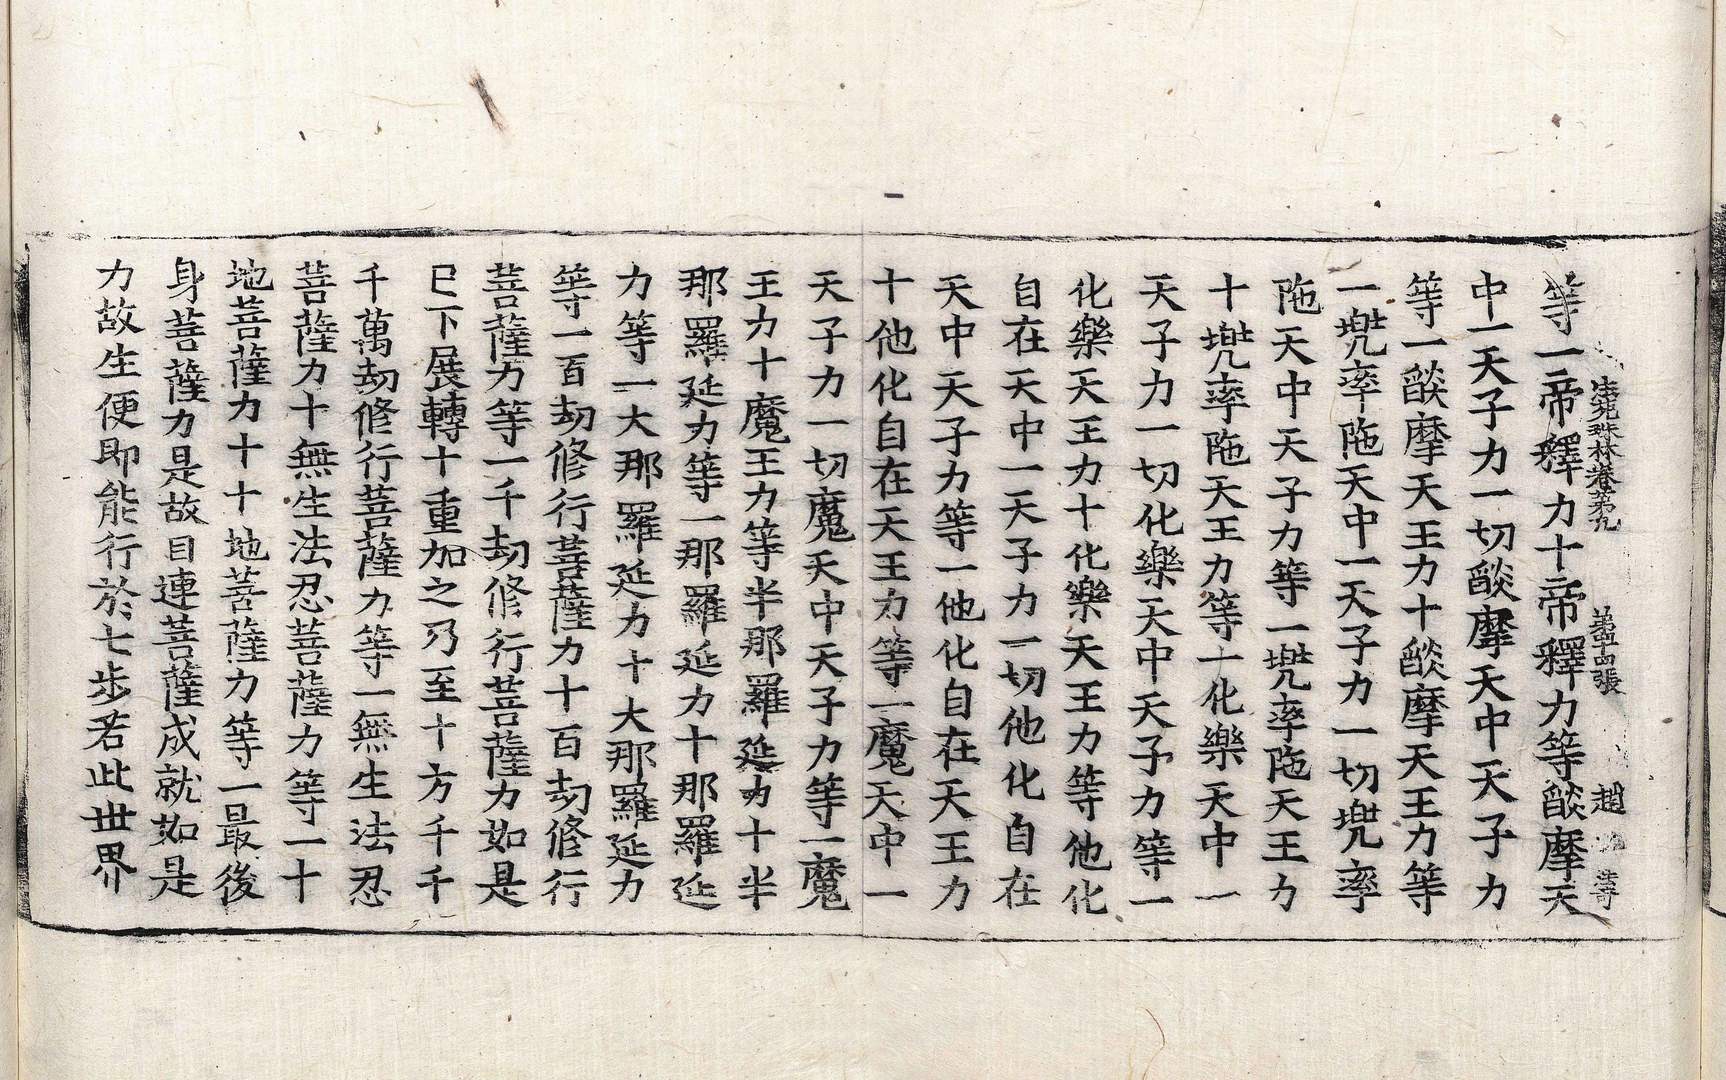 法苑珠林卷第九 第十四張 趙
等一帝釋力十帝釋力等燄摩天
中一天子力一切燄摩天中天子力
等一燄摩天王力十燄摩天王力等
一兠率陁天中一天子力一切兠率
陁天中天子力等一兠率陁天王力
十兠率陁天王力等一化樂天中一
天子力一切化樂天中天子力等一
化樂天王力十化樂天王力等他化
自在天中一天子力一切他化自在
天中天子力等一他化自在天王力
十他化自在天王力等一魔天中一
天子力一切魔天中天子力等一魔
王力十魔王力等半那羅延力十半
那羅延力等一那羅延力十那羅延
力等一大那羅延力十大那羅延力
等一百劫修行菩薩力十百劫修行
菩薩力等一千劫修行菩薩力如是
已下展轉十重加之乃至十方千千
千萬劫修行菩薩力等一無生法忍
菩薩力十無生法忍菩薩力等一十
地菩薩力十十地菩薩力等一最後
身菩薩力是故目連菩薩成就如是
力故生便即能行於七步若此世界